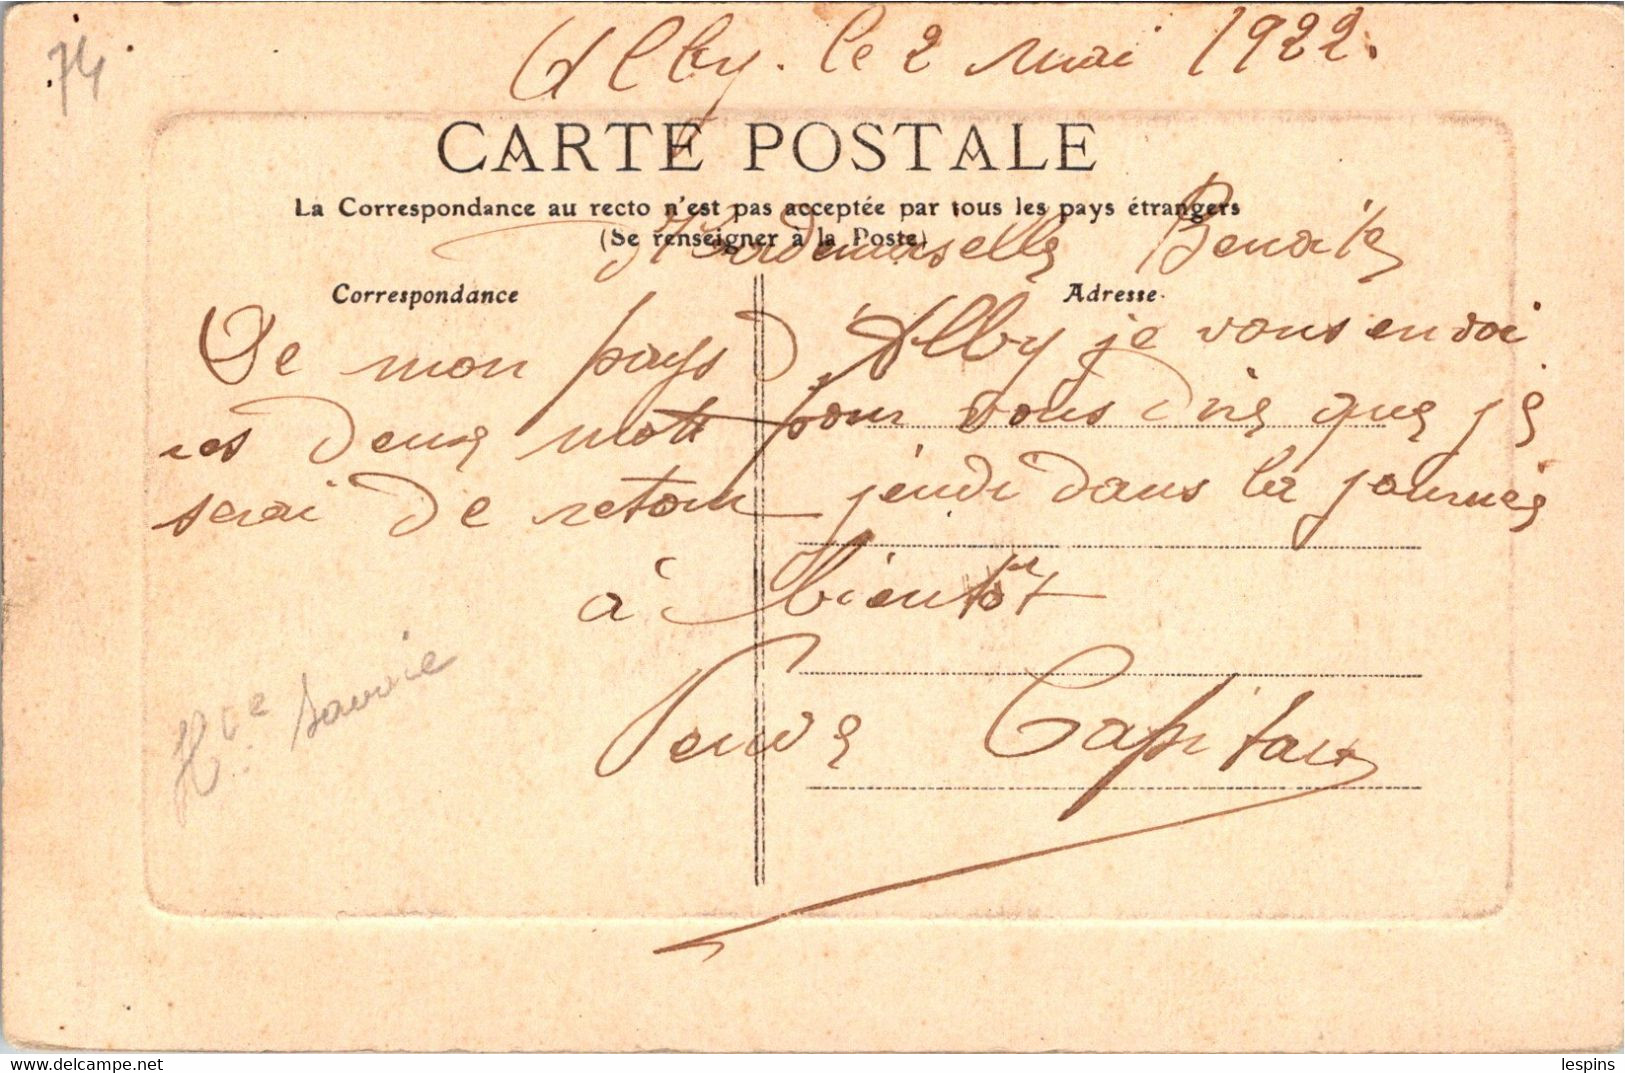 74
Alby. le 2 mai 1922.
CARTE POSTALE
La Correspondance au recto n'est pas acceptée par tous les pays étrangers
(Se renseigner à la Poste)
Mademoiselle Benoite
Correspondance
Adresse.
De mon pays D Alby je vous envoi
ces deux mots pour vous dire que je
serai de retour jeudi dans la journée
à bientôt
Capitan
Hte Savoie
delcampe.net
lespins